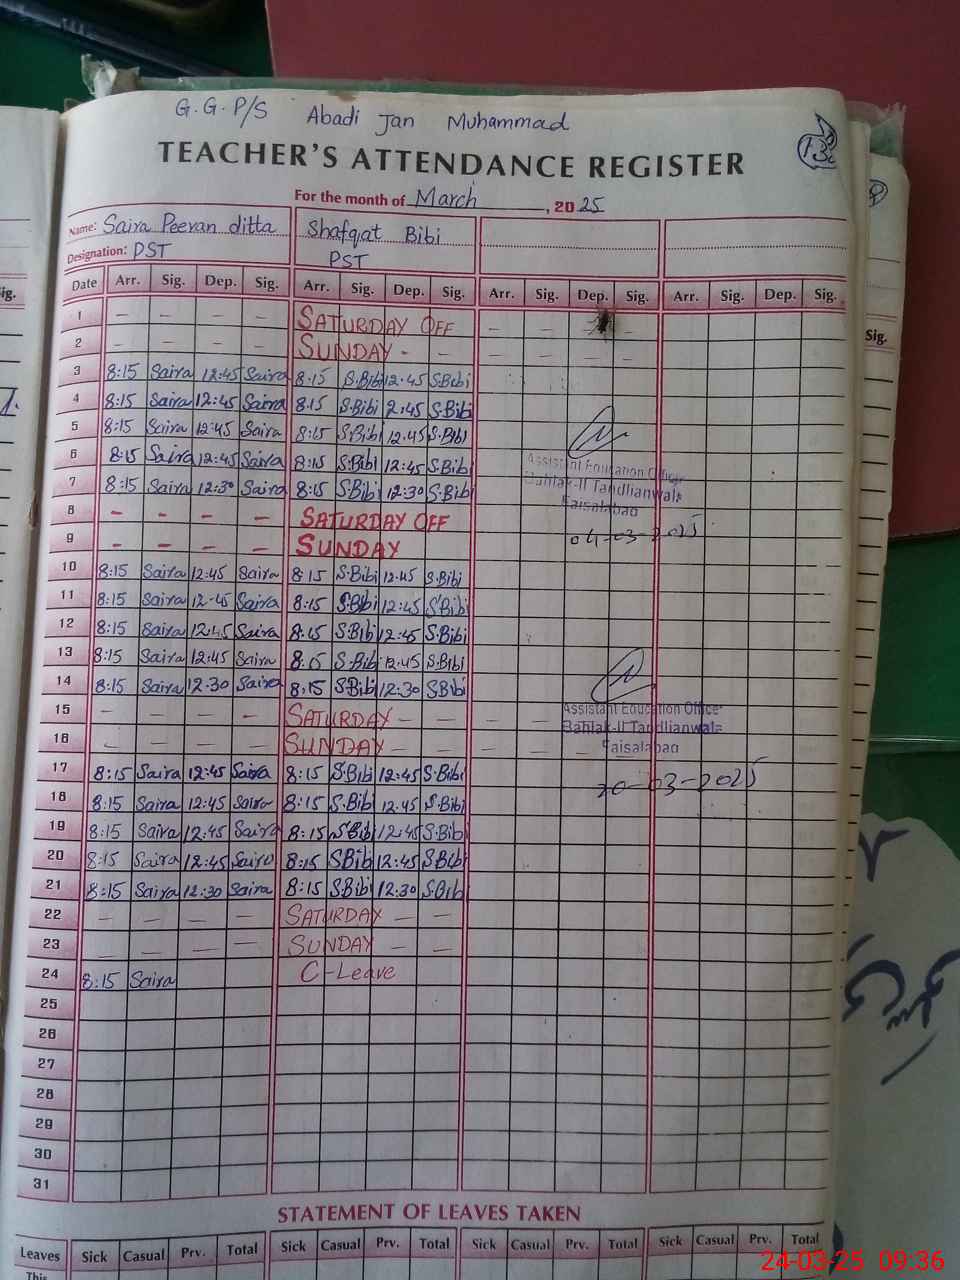 G.G.P/S Abadi Jan Muhammad
TEACHER'S ATTENDANCE REGISTER
For the month of March, 2025
Name: Saira Peevan ditta Shafqat Bibi
Designation: PST PST
Date Arr. Sig. Dep. Sig. Arr. Sig. Dep. Sig. Arr. Sig. Dep. Sig. Arr. Sig. Dep. Sig.
1 – – – – SATURDAY OFF – – – –
2 – – – – SUNDAY - – – – – –
3 8:15 Saira 12:45 Saira 8:15 S.Bibi 12.45 S.Bibi
4 8:15 Saira 12:45 Saira 8.15 S.Bibi 2:45 S.Bibi
5 8:15 Saira 12:45 Saira 8:15 S.Bibi 12.45 S.Bibi
6 8:15 Saira 12:45 Saira 8:15 S.Bibi 12:45 S.Bibi
7 8:15 Saira 12:30 Saira 8:15 S.Bibi 12:30 S.Bibi
Assistant Education Officer
Bahlak-II Tandlianwala
Faisalabad
8 – – – – SATURDAY OFF
9 – – – – SUNDAY
04-03-2025
10 8:15 Saira 12:45 Saira 8:15 S.Bibi 12:45 S.Bibi
11 8:15 Saira 12-45 Saira 8:15 S.Bibi 12:45 S.Bibi
12 8:15 Saira 12:45 Saira 8:15 S.Bibi 12:45 S.Bibi
13 8:15 Saira 12:45 Saira 8:15 S.Bibi 12:45 S.Bibi
14 8:15 Saira 12:30 Saira 8:15 S.Bibi 12:30 SBibi
15 – – – – SATURDAY – – –
Assistant Education Officer
Bahlak-II Tandlianwala
Faisalabad
16 – – – – SUNDAY – – – – – –
17 8:15 Saira 12:45 Saira 8:15 S.Bibi 12:45 S.Bibi
20-03-2025
18 8:15 Saira 12:45 Saira 8:15 S.Bibi 12.45 S.Bibi
19 8:15 Saira 12:45 Saira 8:15 S.Bibi 12:45 S.Bibi
20 8:15 Saira 12:45 Saira 8:15 SBibi 12:45 S.Bibi
21 8:15 Saira 12:30 Saira 8:15 S.Bibi 12:30 S.Bibi
22 – – – – SATURDAY – –
23 – – – – SUNDAY – –
24 8:15 Saira C-Leave
25
26
27
28
29
30
31
STATEMENT OF LEAVES TAKEN
Leaves Sick Casual Prv. Total Sick Casual Prv. Total Sick Casual Prv. Total Sick Casual Prv. Total
This
24-03-25 09:36